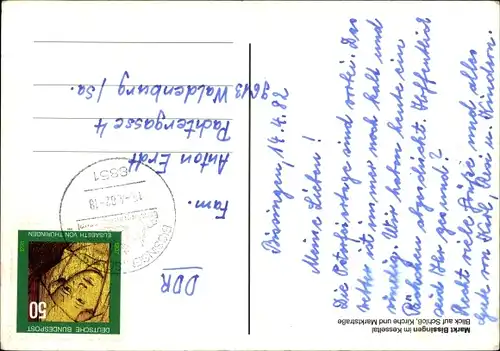 Bissingen, 14.4.82
Meine Lieben!
Die Osterfeiertage sind vorbei. Das
Wetter ist immer noch kalt und
windig. Wir haben heute ein
Päckchen abgeschickt. Hoffentlich
seid Ihr gesund?
Recht viele Grüße und alles
Gute von Karl, Resi u. Kindern.
Markt Bissingen im Kesseltal
Blick auf Schloß, Kirche und Marktstraße
Fam.
Anton Erdt
Pachtergasse 4
9613 Waldenburg/Sa.
DDR
8851
BISSINGEN
ELISABETH VON THÜRINGEN
50
DEUTSCHE BUNDESPOST